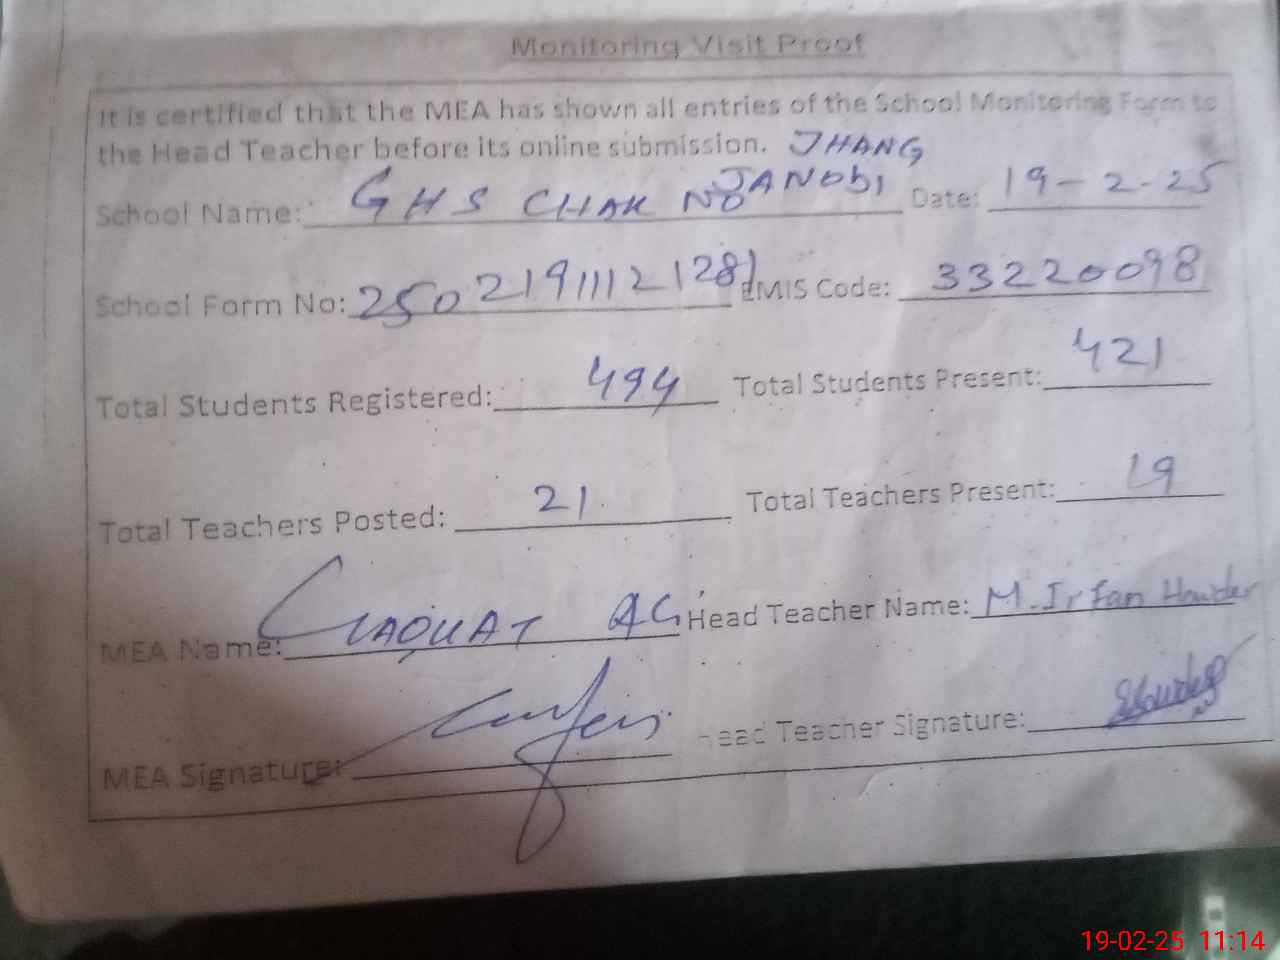 Monitoring Visit Proof
It is certified that the MEA has shown all entries of the School Monitoring Form to
the Head Teacher before its online submission. JHANG
JANObI
School Name: GHS CHAK NO Date: 19-2-25
School Form No: 25021911121281 EMIS Code: 33220098
Total Students Registered: 494 Total Students Present: 421
Total Teachers Posted: 21 Total Teachers Present: 19
MEA Name: LIAQUAT Head Teacher Name: M. Irfan
MEA Signature: Head Teacher Signature:
19-02-25 11:14